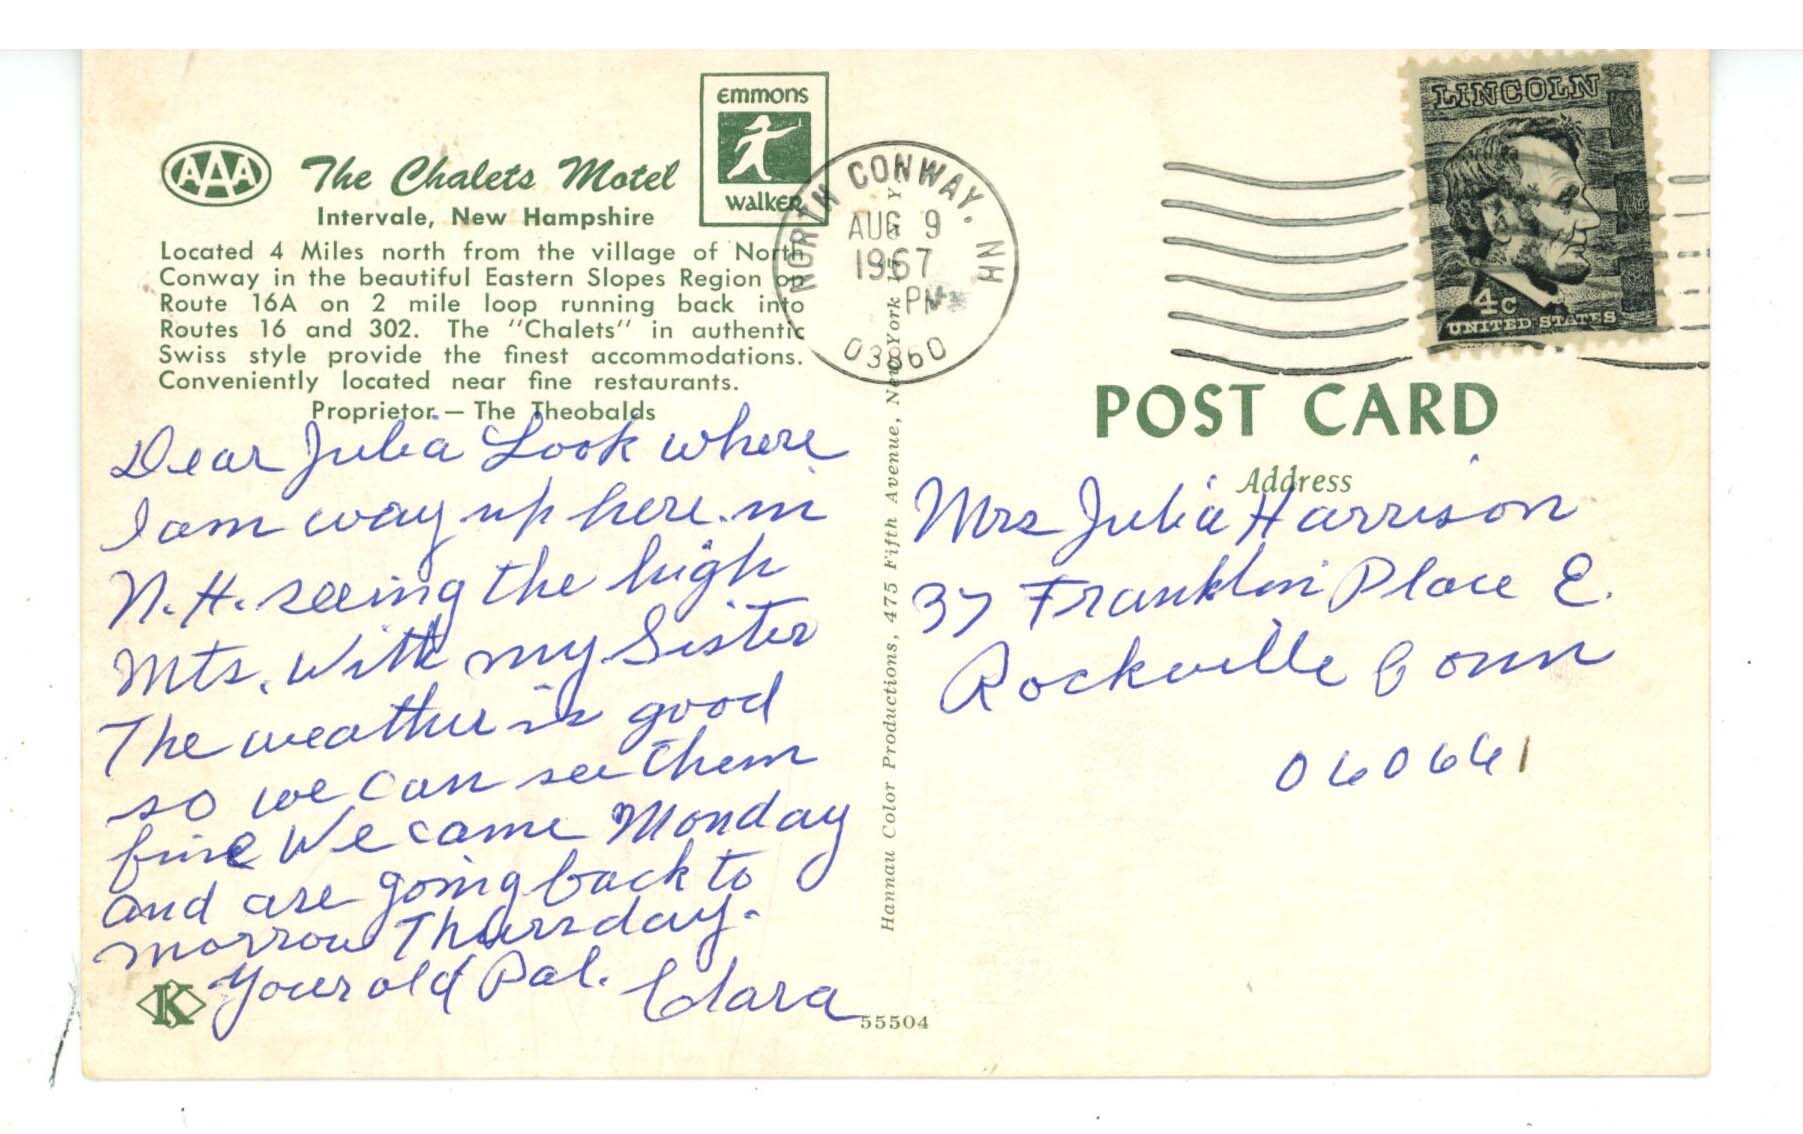 AAA
The Chalets Motel
Intervale, New Hampshire
Located 4 Miles north from the village of North
Conway in the beautiful Eastern Slopes Region on
Route 16A on 2 mile loop running back into
Routes 16 and 302. The "Chalets" in authentic
Swiss style provide the finest accommodations.
Conveniently located near fine restaurants.
Proprietor — The Theobalds
emmons
walker
Dear Julia Look where
I am way up here in
N.H. seeing the high
Mts. With my Sister
The weather is good
so we can see them
fine We came Monday
and are going back to
morrow Thursday.
Your old Pal. Clara
K
55504
Hannau Color Productions, 475 Fifth Avenue, New York 17, N Y
NORTH CONWAY, NH
AUG 9
1967
PM
03860
LINCOLN
4c
UNITED STATES
POST CARD
Address
Mrs Julia Harrison
37 Franklin Place E.
Rockville Conn
060661